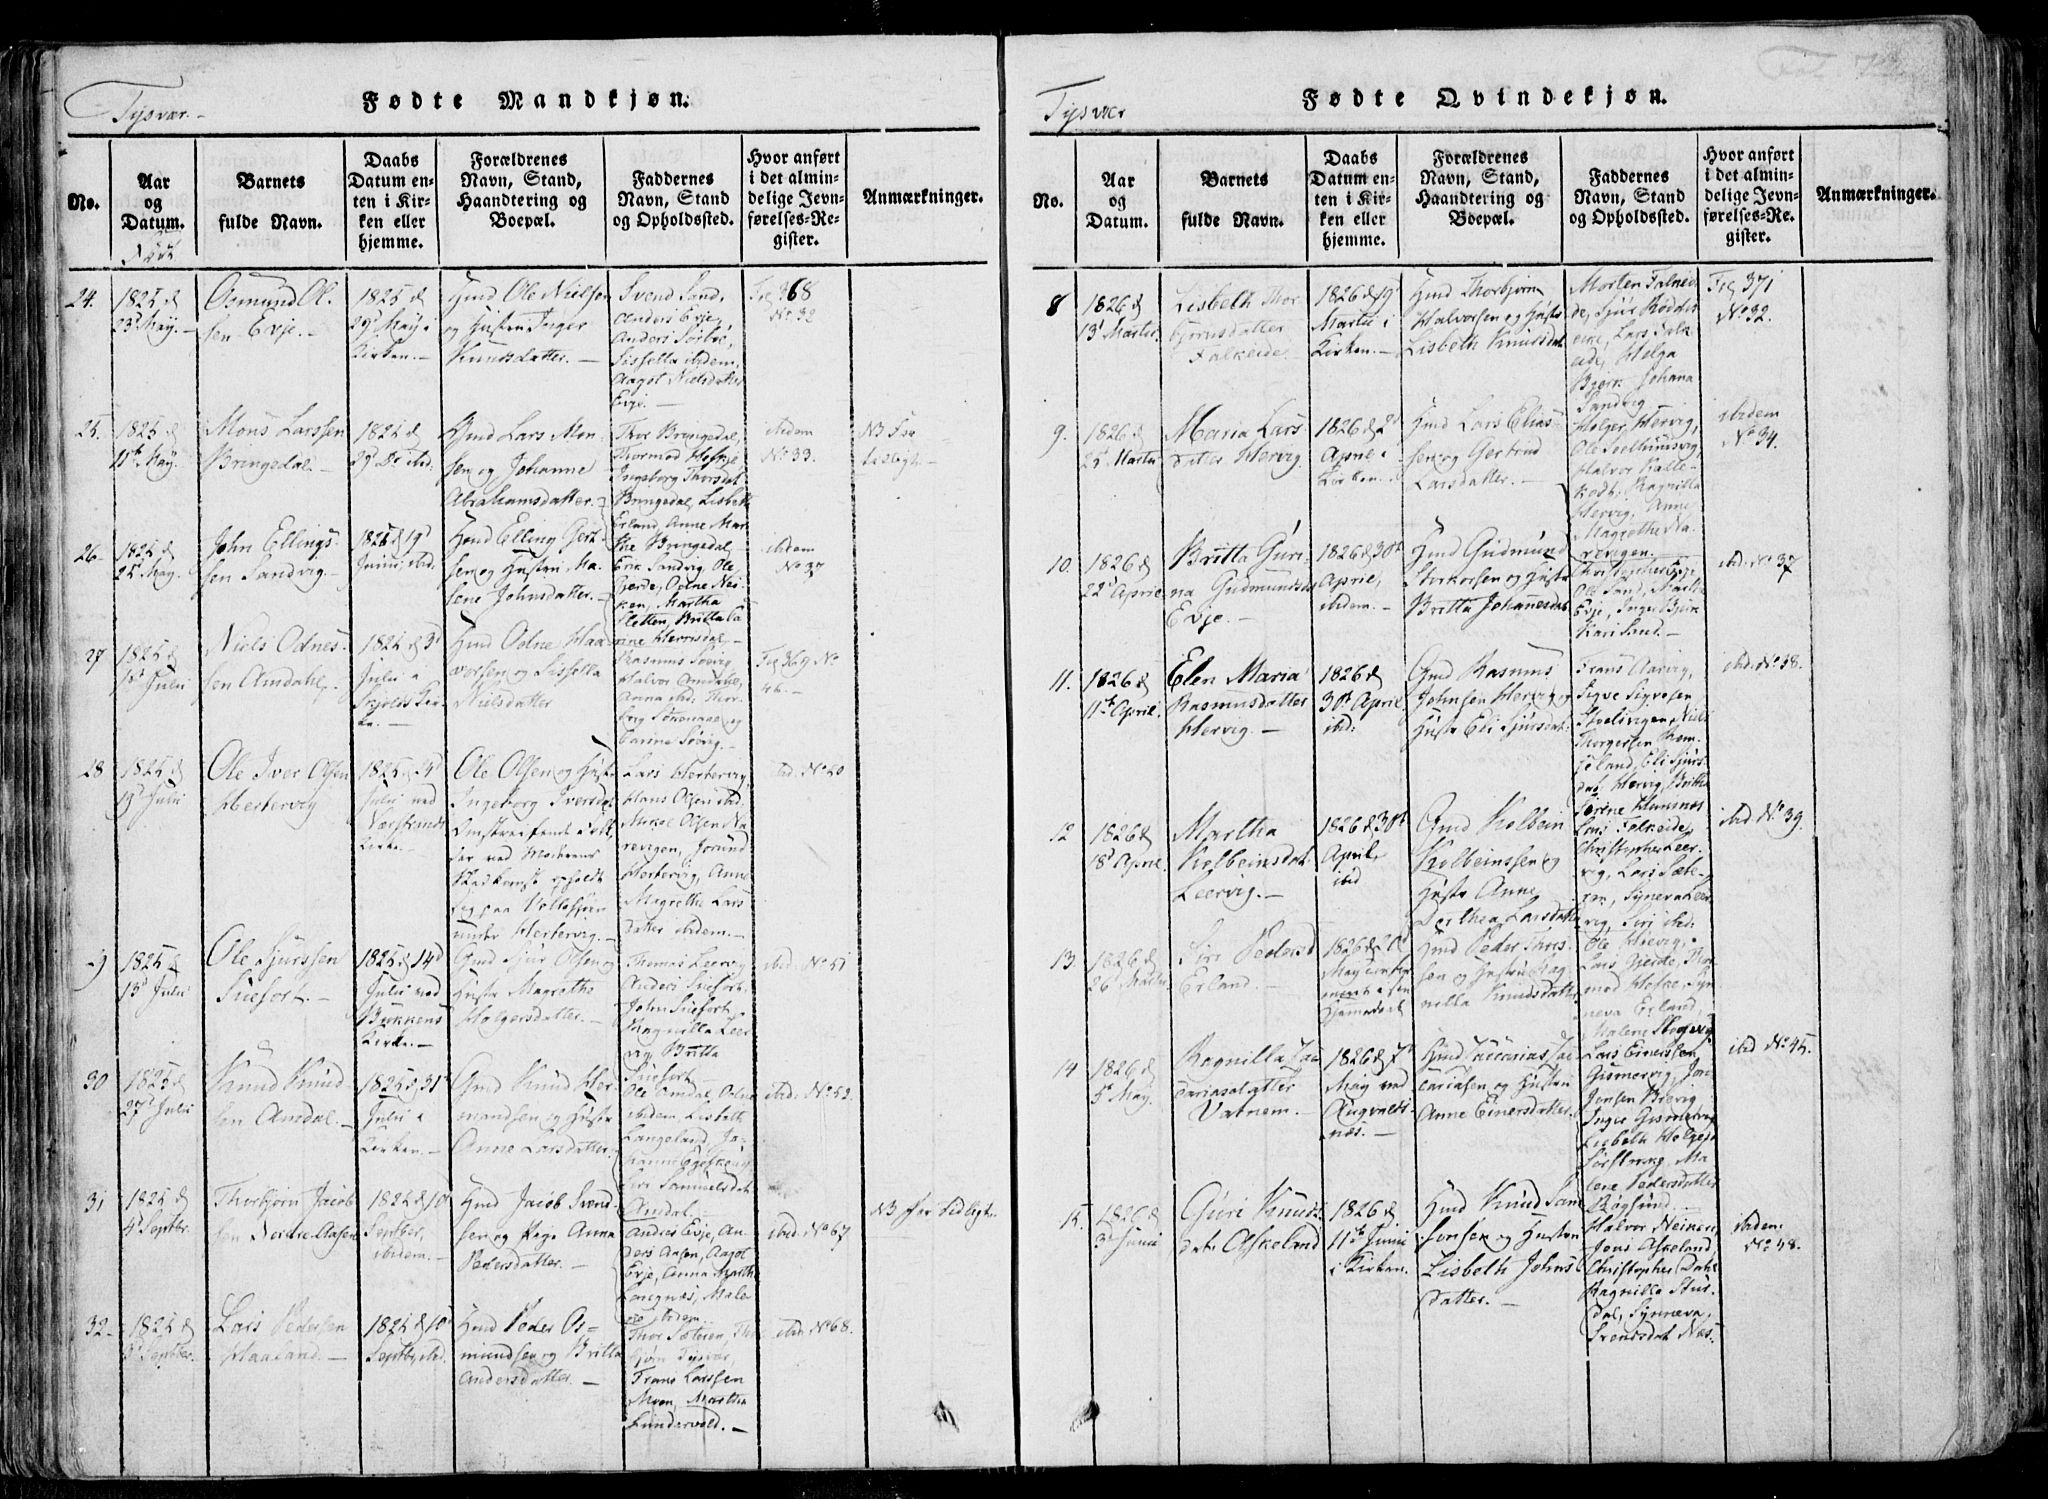 Tysvær.
Fødte Mandkjøn.
No.
Aar
og
Datum.
Barnets
fulde Navn.
Daabs
Datum en-
ten i Kir-
ken eller
hjemme.
Forældrenes
Navn, Stand,
Haandtering og
Boepæl.
Faddernes
Navn, Stand
og Opholdssted.
Hvor anført
i det almin-
delige Jevn-
førelses-Re-
gister.
Anmærkninger.
24.
1825 d
23d May.
Osmund Ol-
sen Evje.
1825 d
29d May i
Kirken.
Gmd Ole Nielsen
og Hustru Inger
Knudsdatter.
Svend Sand,
Anders Evje,
Anders Sørbøe,
Sissella ibidem,
Aagot Nielsdatter
Evje.
Fig 368
No 32
25.
1825 d
11te May.
Mons Larssen
Bringedal.
1825 d
29d Do ibid.
Gmd Lars Mon-
sen og Johanne
Abrahamsdatter.
Thor Bringedal,
Thormod Hefkje
Ingeborg Thorsdat
Bringedal, Lisbeth
Erland, Anne Mar-
the Bringedal
ibidem
No 33.
26.
1825 d
25 May.
John Ellings-
sen Sandvig.
1825 d 19d
Junii ibid.
Gmd Elling Gert-
sen og Hustru Ma-
lene Johnsdatter.
Erik Sandvig, Ole
Gjerde, Odne Nei-
ken, Martha
Sletten, Britta Ca-
rine Hervisdal.
ibidem
No 37
27
1825 d
1d Julii
Niels Odnes-
sen Amdahl.
1825 d 3d
Julii i
Skjolds Kir-
ke.
Gmd Odne Haa-
vorsen og Sissella
Nielsdatter
Rasmus Søvig,
Halvor Amdahl,
Anna ibid, Thor-
berg og
Carine Søvig.
Fig 369 No
46.
28
1825 d
19d Julii
Ole Iver Olsen
Hertervig
1825
Julii ved
Nærstrands
Kirke.
Ole Olsen og Hust.
Ingeborg Iversdat
Omstreifende Folk,
der ved Moderens
opholdt
sig paa
under Hertervig.
Lars Hertervig,
Hans Olsen ibid.
Mikal Olsen Na-
revigen, Jorund
Hertervig, Anne
Magrethe Lars-
datter ibidem.
ibid. No 50
29
1825 d
13d Julii
Ole Sjurssen
Suefort.
1825 d 14d
Julii ved
Bukkens
Kirke.
Gmd Sjur Olsen og
Hustr Magrethe
Holgersdatter.
Thomas Leervig
Anders Suefort,
John Suefort,
Magnilla Leer-
vig, Britta
Suefort
ibid. No 51
30
1825 d
27d Julii
Knud Knud-
sen Amdal.
1825 d 31d
Julii i
Kirken.
Gmd Knud Her-
mandsen og Hustr
Anne Larsdatter.
Ole Amdal, Odne
ibidem, Lisbeth
Langeland, Jo-
Siri Samuelsdat
Amdal.
ibid. No 52.
31
1825 d
4d Septbr.
Thorbjørn Jacob-
sen Nerdre-Aasen
1825 d 10d
Septbr,
ibidem.
Gmd Jacob Svend-
sen og Pige Anna
Pedersdatter.
Andres Evje, An-
ders Aasen, Aagot
Evje, Anna Marth
Longnæs, Male-
ne ibidem
ibid. No 67
32.
1825 d
3d Septbr.
Lars Pedersen
Haaland.
1825 d 10d
Septbr, ibid.
Gmd Peder Os-
mundsen og Britta
Andersdatter.
Thor Sæteren, Tho-
bjørn Tysvær,
Frans Larssen
Moen, Martha
Sundervold.
ibid. No 68.
Tysvær
Fødte Qvindekjøn.
No.
Aar
og
Datum.
Barnets
fulde Navn.
Daabs
Datum en-
ten i Kir-
ken eller
hjemme.
Forældrenes
Navn, Stand,
Haandtering og
Boepæl.
Faddernes
Navn, Stand
og Opholdssted.
Hvor anført
i det almin-
delige Jevn-
førelses-Re-
gister.
Anmærkninger.
8
1826 d
13d Martii
Lisbeth Thor-
bjørnsdatter
Falkeide.
1826 d 19d
Martii i
Kirken.
Gmd Thorbjørn
Halvorsen og Hustr
Lisbeth Knudsdat
Morten Falkei-
de, Sjur Rødde-
eide, Lars Falk-
eide, Helga
Bjerk, Johana
Sandvig
Fig 371
No 32.
9.
1826 d
25 Martii
Maria Lars-
datter Hervig.
1826 d 2d
April i
Kirken.
Gmd Lars Elias-
sen og Gertrud
Larsdatter.
Holger Hervig,
Ole Soelhunsvig,
Halvor Kalle-
kodt, Ragnilla
Hervig, Anne
Magrethe Na-
revigen.
ibidem
No 34.
10.
1826 d
22d April
Britta Guri-
na Gudmundsdat
Evje.
1826 d 30te
April,
ibidem.
Gmd Gudmund
Storkorsen og Hustr
Britta Johanesdat
Christopher Evje
Ole Sand, Martha
Evje, Inger Bjerk
Kari Sand.
ibid. No 37
11.
1826 d
11te April.
Elen Maria
Rasmusdatter
Hervig.
1826 d
30te April
ibid:
Gmd Rasmus
Johnsen Hervig og
Hustr Eli Sjursdat:
Frans Aarvig,
Sigve Sigvesen
Stoelevigen, Niels
Thorgersen Rom-
, Eli Sjurs-
dat Hervig, Britha
Serine Hunsnæs
ibid. No 38.
12
1826 d
18d April
Martha
Kolbeinsdat:
Leervig.
1826 d 30te
April,
ibid
Gmd Kolbein
Kolbeinssen og
Hustr Anne
Dorthea Larsdatter
Lars Falkeide,
Christopher Leer-
vig, Lars Sæte-
ren, Synneva Leer-
vig, Siri ibid.
ibid No 39.
13.
1826 d
26d Martii
Siri Pedersd
Erland.
1826 d
May
Gmd Peder Thors-
sen og Hustru Rag-
nilla Knudsdatter
Ole Hervig,
Lars Gjerde,
mod Hefke, Syn-
neva Erland,
Malene
14
1826 d
5t May.
Ragnilla Zac-
cariasdatter
Vatnem.
1826 d 7d
May ved
Augvalds-
næs.
Gmd Zaccarias Zac-
cariasen og Hustru
Anne Einersdatter.
Lars Einersen
Gismervig, Jon
Jonsen Brevig
Inger Gismervig
Lisbeth Helgesd
Sørstokke, Ma-
lene Pedersdatter
Røgsund.
ibid No 45.
15.
1826 d
3d Junii
Guri Knuds-
dat: Askeland
1826 d
11te Junii
i Kirken.
Gmd Knud Han-
sonsen og Hustru
Lisbeth Johns-
datter.
Halvor Neiken,
Jens Askeland,
Christopher Dahl
Ragnilla Stuv-
dal, Synneva
Svendsdat Næs.
ibidem
No 48.